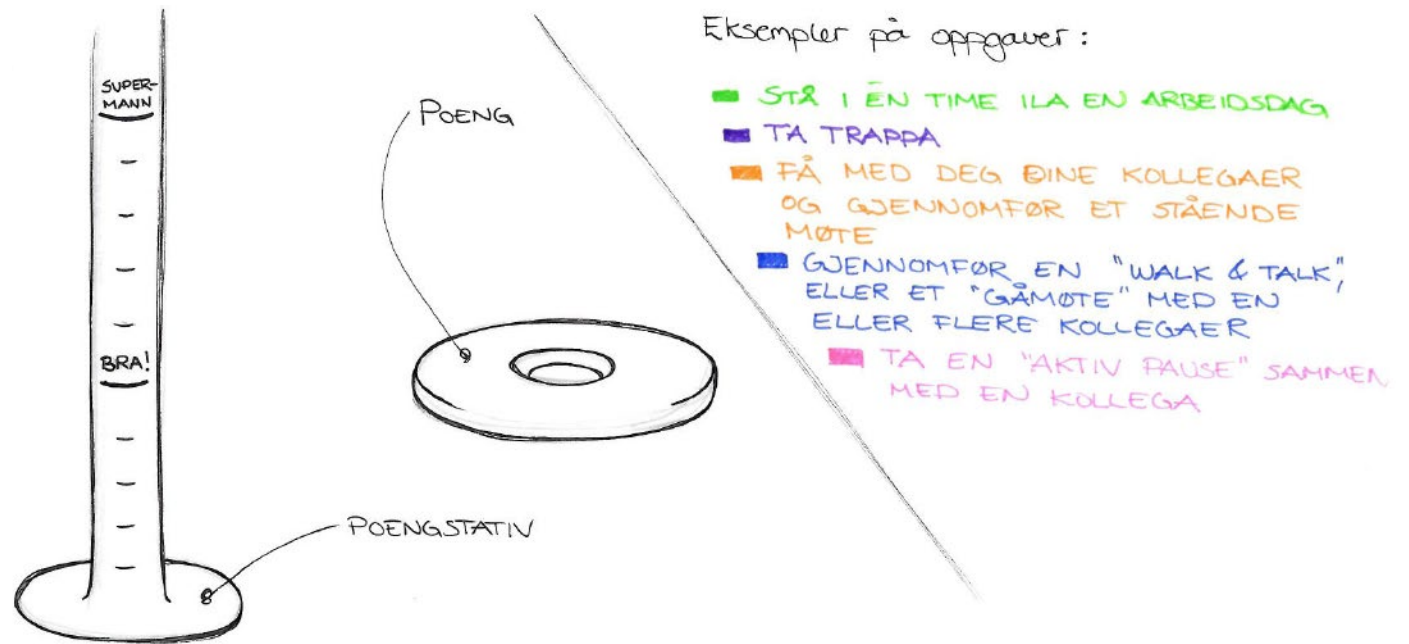 SUPER-
MANN
BRA!
POENG
POENGSTATIV
Eksempler på oppgaver:
STÅ I ÉN TIME ILA EN ARBEIDSDAG
TA TRAPPA
FÅ MED DEG DINE KOLLEGAER
OG GJENNOMFØR ET STÅENDE
MØTE
GJENNOMFØR EN "WALK & TALK",
ELLER ET "GÅMØTE" MED EN
ELLER FLERE KOLLEGAER
TA EN "AKTIV PAUSE" SAMMEN
MED EN KOLLEGA